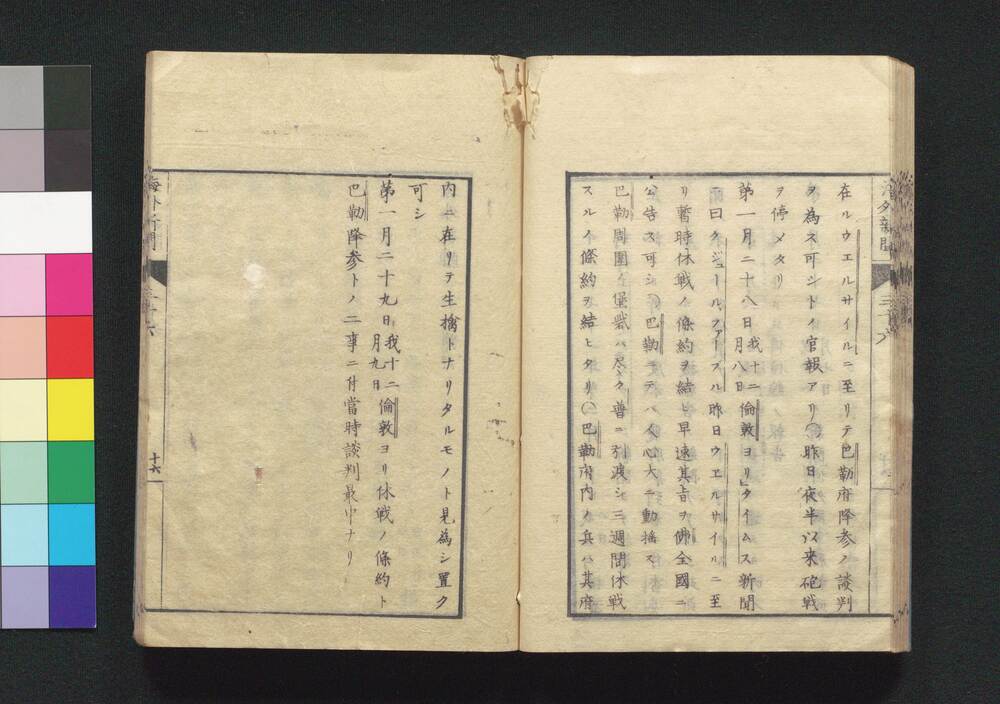 在ルウエルサイルニ至リテ巴勒府降参ノ談判
ヲ為ス可シトノ官報アリ○昨日夜半以来砲戦
ヲ停メタリ
第一月二十八日我十二月八日倫敦ヨリ」タイムス新聞
ニ曰クジュールファーブル昨日ウエルサイルニ至
リ暫時休戦ノ條約ヲ結ヒ早速其旨ヲ佛全國ニ
公告ス可シ○巴勒ニテハ人心大ニ動揺ス
巴勒周圍ノ堡砦ハ尽ク普ニ引渡シ三週間休戦
スルノ條約ヲ結ヒタリ○巴勒府内ノ兵ハ其府
海外新聞
三十六
内ニ在リテ生擒トナリタルモノト見為シ置ク
可シ
第一月二十九日我十二月九日倫敦ヨリ休戦ノ條約ト
巴勒降参トノ二事ニ付當時談判最中ナリ
海外新聞
三十六
十六